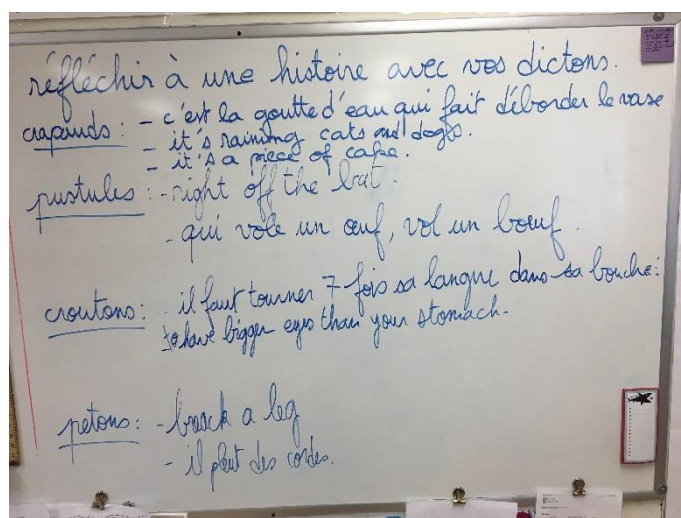 réfléchir à une histoire avec vos dictons.
crapauds : - c'est la goutte d'eau qui fait déborder le vase
- it's raining cats and dogs.
- it's a piece of cake.
pustules : - right off the bat.
- qui vole un œuf, vol un bœuf.
croutons : - il faut tourner 7 fois sa langue dans sa bouche :
to have bigger eyes than your stomach.
petons : - break a leg
- il pleut des cordes.